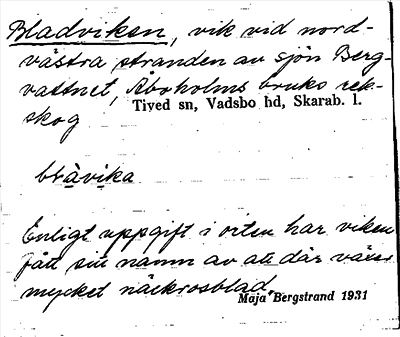 Bladviken, vik vid nord-
västra stranden av sjön Berg-
vattnet, Åboholms bruks rek-
skog
Tived sn, Vadsbo hd, Skarab. l.
blàvika
Enligt uppgift i orten har viken
fått sitt namn av att där växer
mycket näckrosblad.
Maja Bergstrand 1931